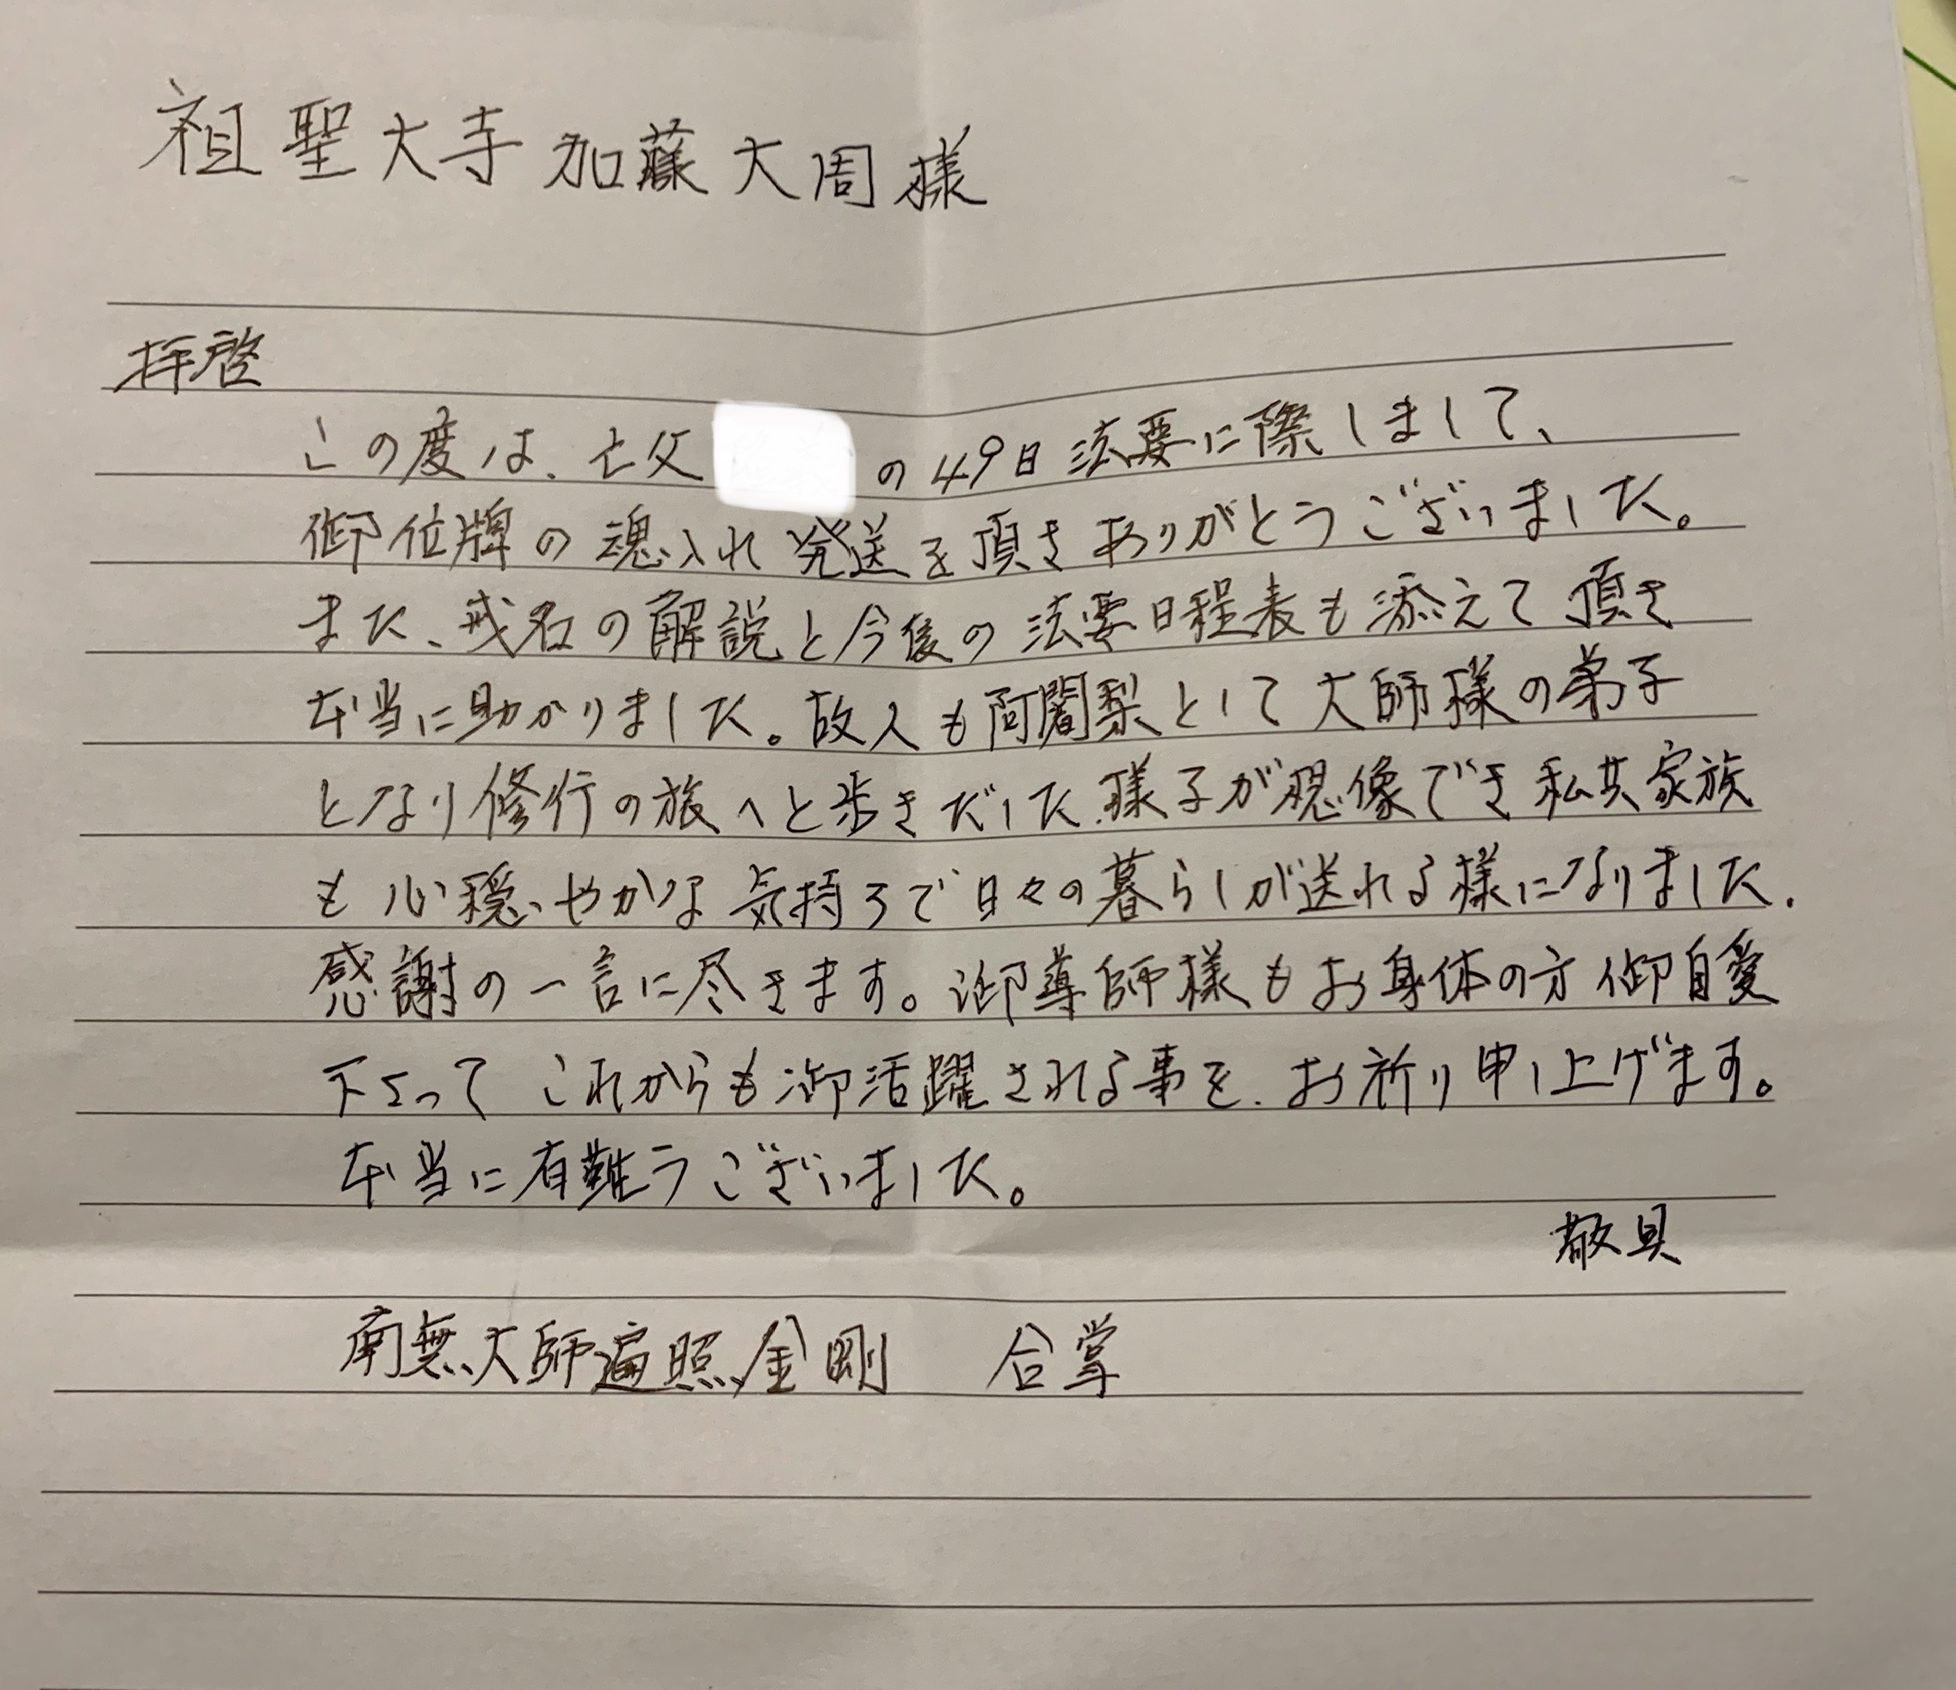 祖聖大寺 加藤大周様
拝啓
この度は、亡父 の49日法要に際しまして、
御位牌の魂入れ発送を頂きありがとうございました。
また、戒名の解説と今後の法要日程表も添えて頂き
本当に助かりました。故人も阿闍梨として大師様の弟子
となり修行の旅へと歩きだした様子が想像でき私共家族
も心穏やかな気持ろで日々の暮らしが送れる様になりました.
感謝の一言に尽きます。御導師様もお身体の方御自愛
下さって これからも御活躍される事を、お祈り申し上げます。
本当に有難うございました。
敬具
南無大師遍照金剛 合掌